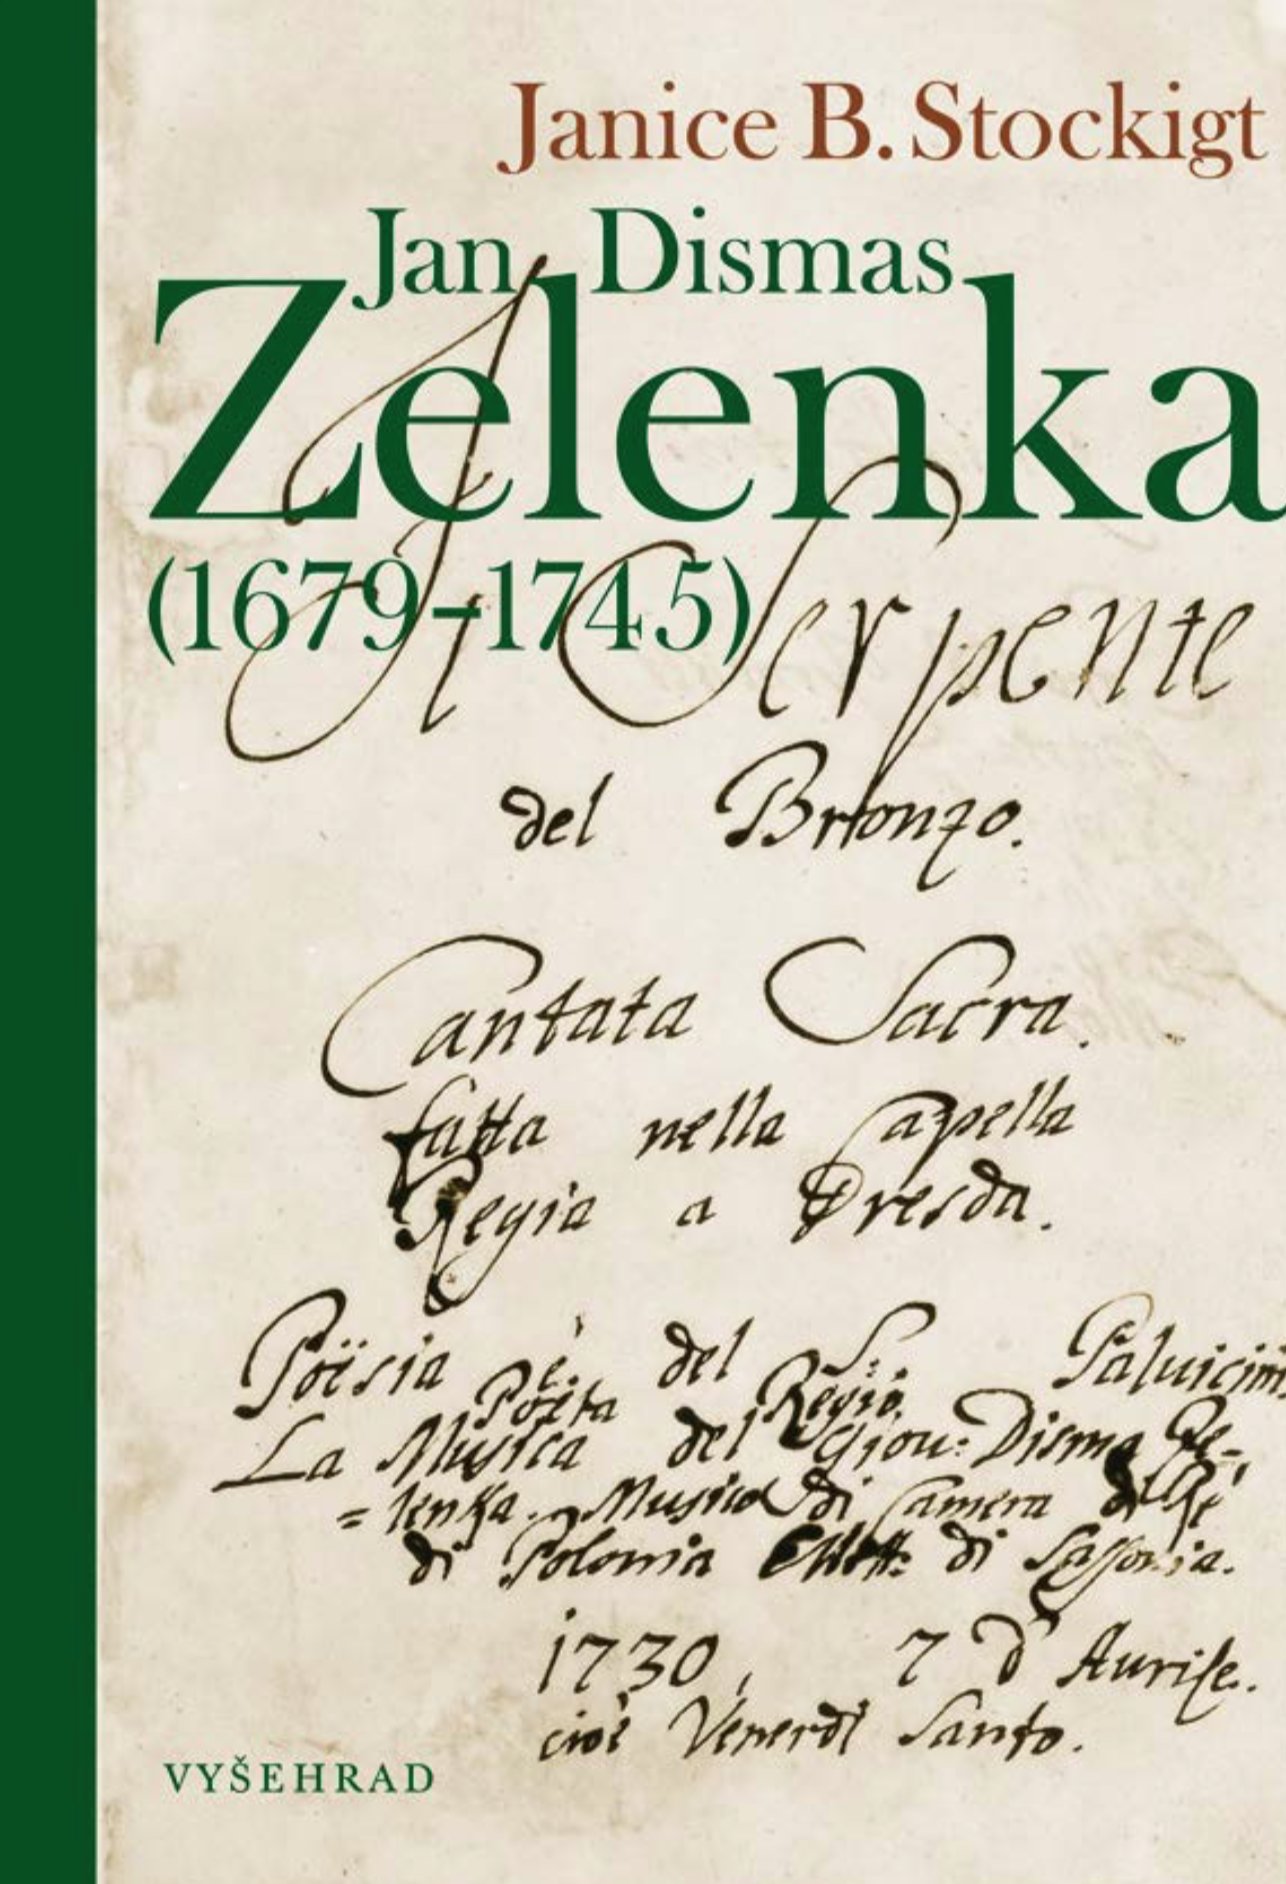 Janice B. Stockigt
Jan Dismas
Zelenka
(1679–1745)
Il Serpente
del Bronzo.
Cantata Sacra.
fatta nella Capella
Regia a Dresda.
Poësia è del S: Paluicini
Poëta Regio.
La Musica del Giou: Disma Ze-
=lenka. Musico di Camera del Rè
di Polonia Elett: di Sassonia.
1730, 7 d' Aurile.
cioè Venerdì Santo.
VYŠEHRAD